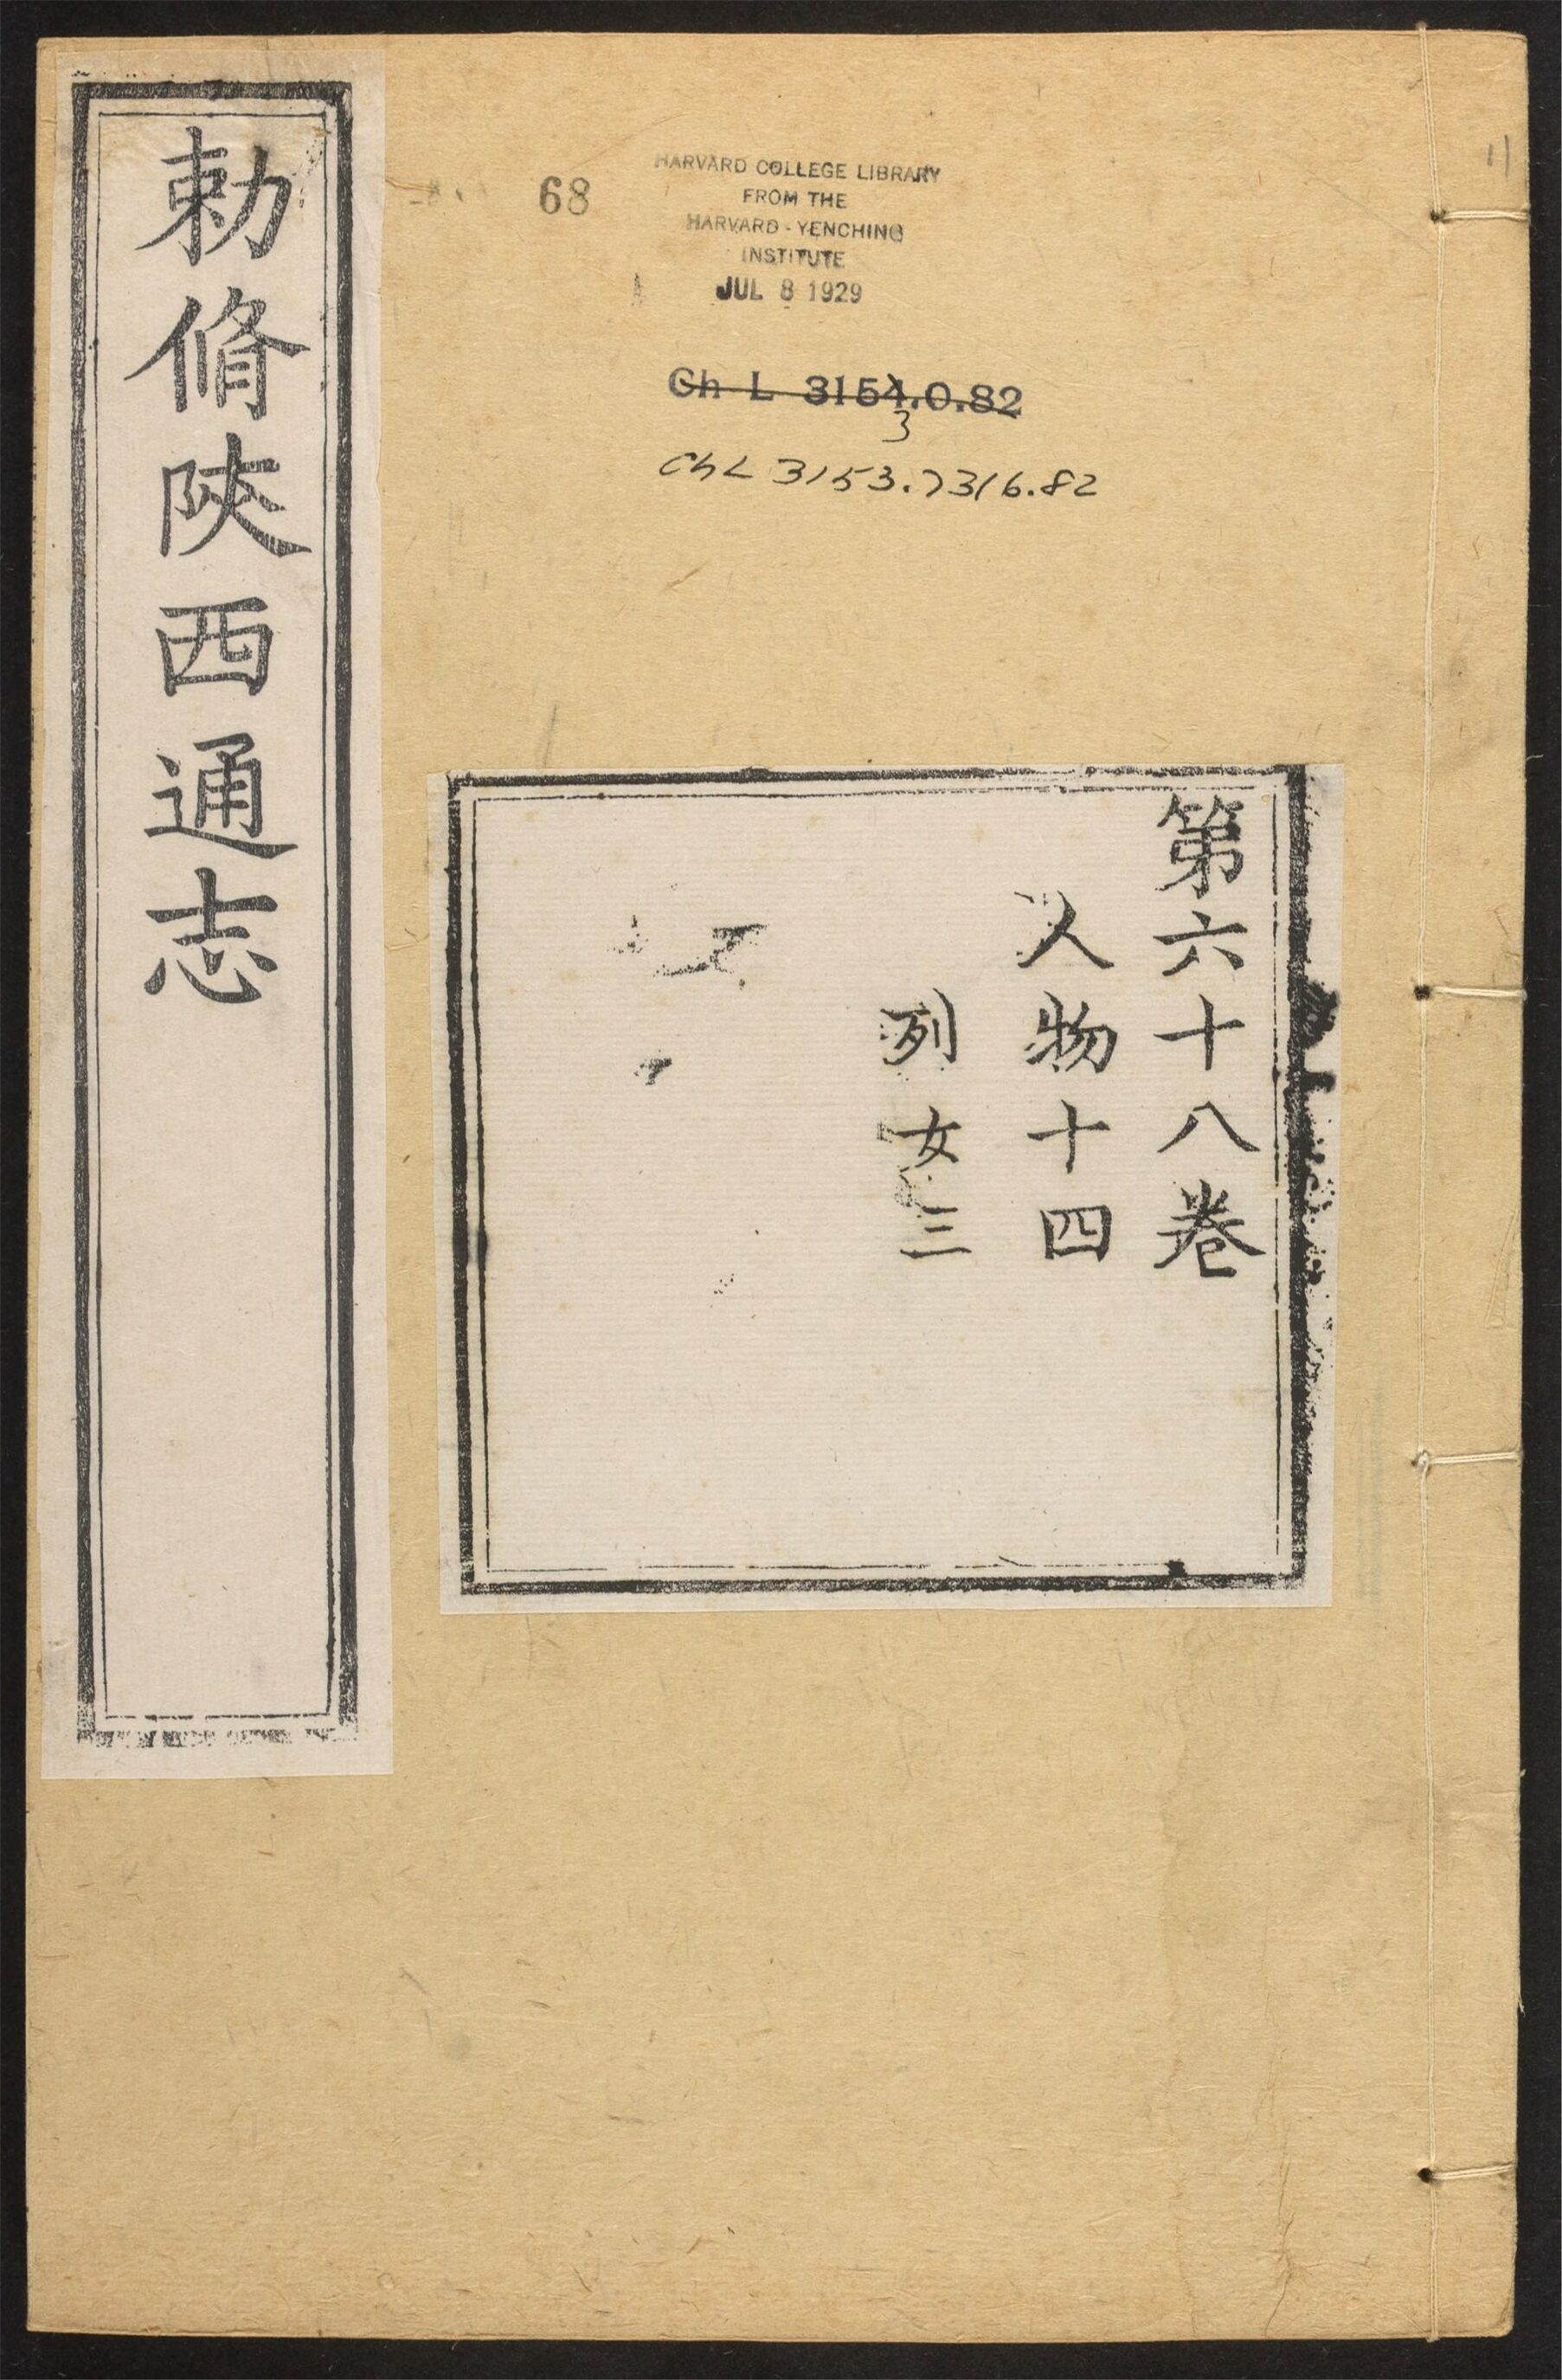 勅脩陝西通志
68
HARVARD COLLEGE LIBRARY
FROM THE
HARVARD-YENCHING
INSTITUTE
JUL 8 1929
Ch L 3154.0.82
3
ChL 3153.7316.82
第六十八卷
人物十四
列女三